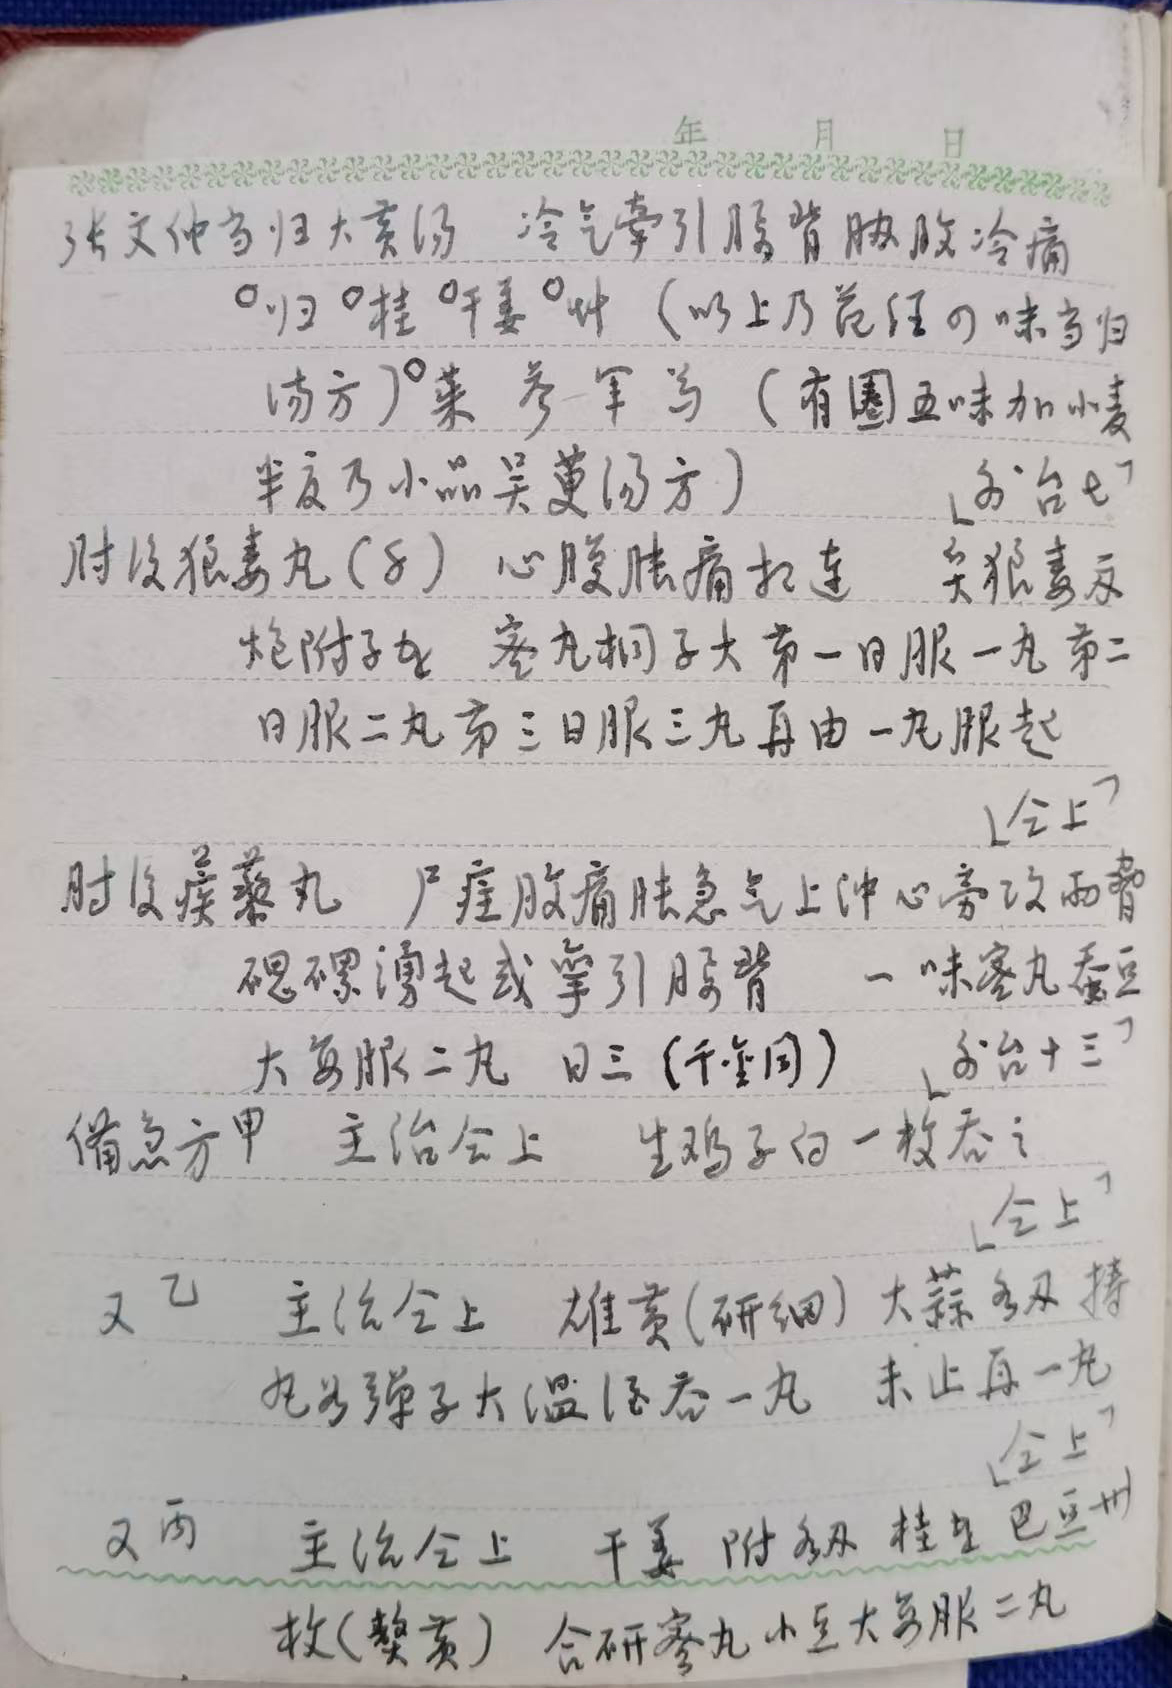 年 月 日
张文仲当归大黄汤 冷气牵引腰背肋腹冷痛
归 桂 干姜 艸 (以上乃范汪の味当归
汤方) 萸 参 军 芍 (有圈五味加小麦
半夏乃小品吴萸汤方) 「外台七」
肘后狼毒丸(方) 心腹胀痛相连 炙狼毒
炮附子 蜜丸桐子大第一日服一丸第二
日服二丸第三日服三丸再由一丸服起
「仝上」
肘后蒺藜丸 尸疰腹痛胀急气上冲心旁攻两胁
磥涌起或挛引腰背 一味蜜丸蚕豆
大每服二丸 日三 (千金同) 「外台十三」
备急方甲 主治仝上 生鸡子白一枚吞之
「仝上」
又乙 主治仝上 雄黄(研细) 大蒜 捣
丸如弹子大温酒吞一丸 未止再一丸
「仝上」
又丙 主治仝上 干姜 附 桂 巴豆卅
枚(熬黄) 合研蜜丸小豆大每服二丸